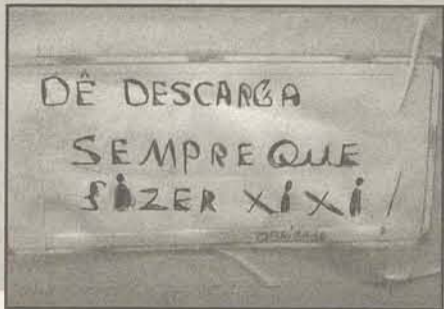 DÊ DESCARGA
SEMPRE QUE
FIZER XIXI!